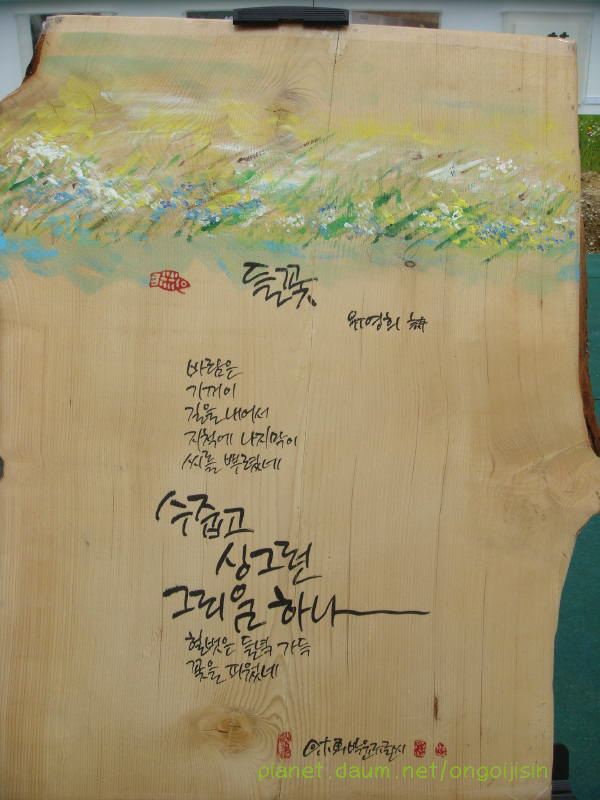 들꽃
유영희 詩
바람은
기꺼이
길을 내어서
지척에 나지막이
씨를 뿌렸네
수줍고
싱그런
그리움 하나
헐벗은 들녘 가득
꽃을 피웠네
planet.daum.net/ongoijisin